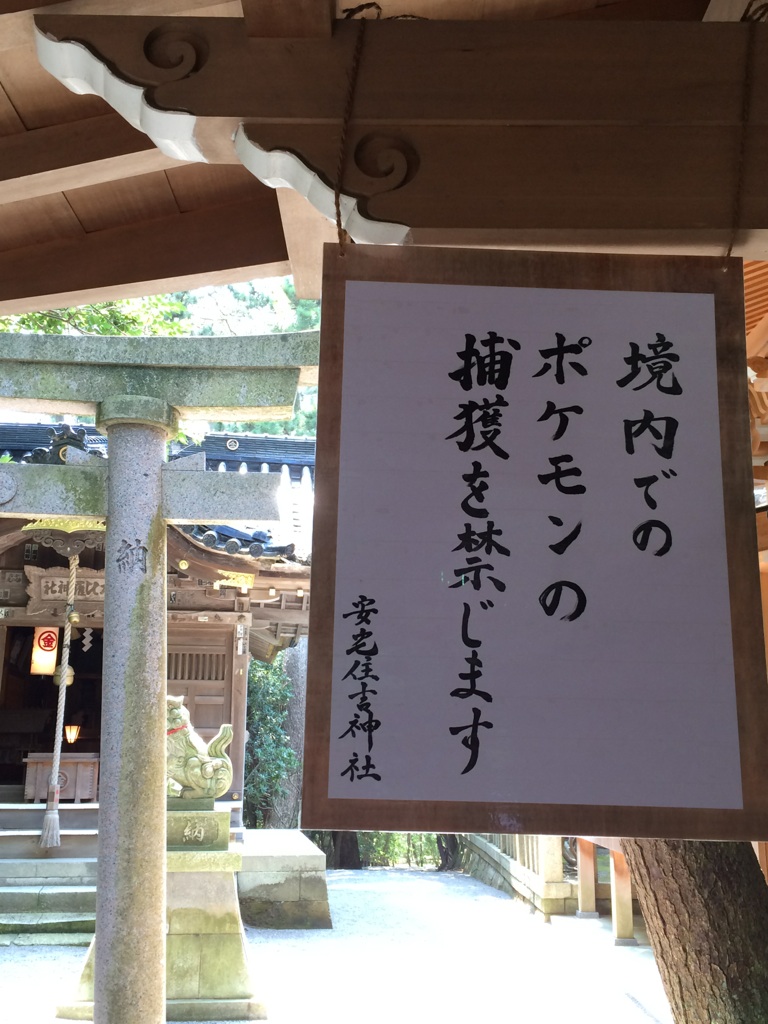 境内での
ポケモンの
捕獲を禁じます
安宅住吉神社
納
金
納